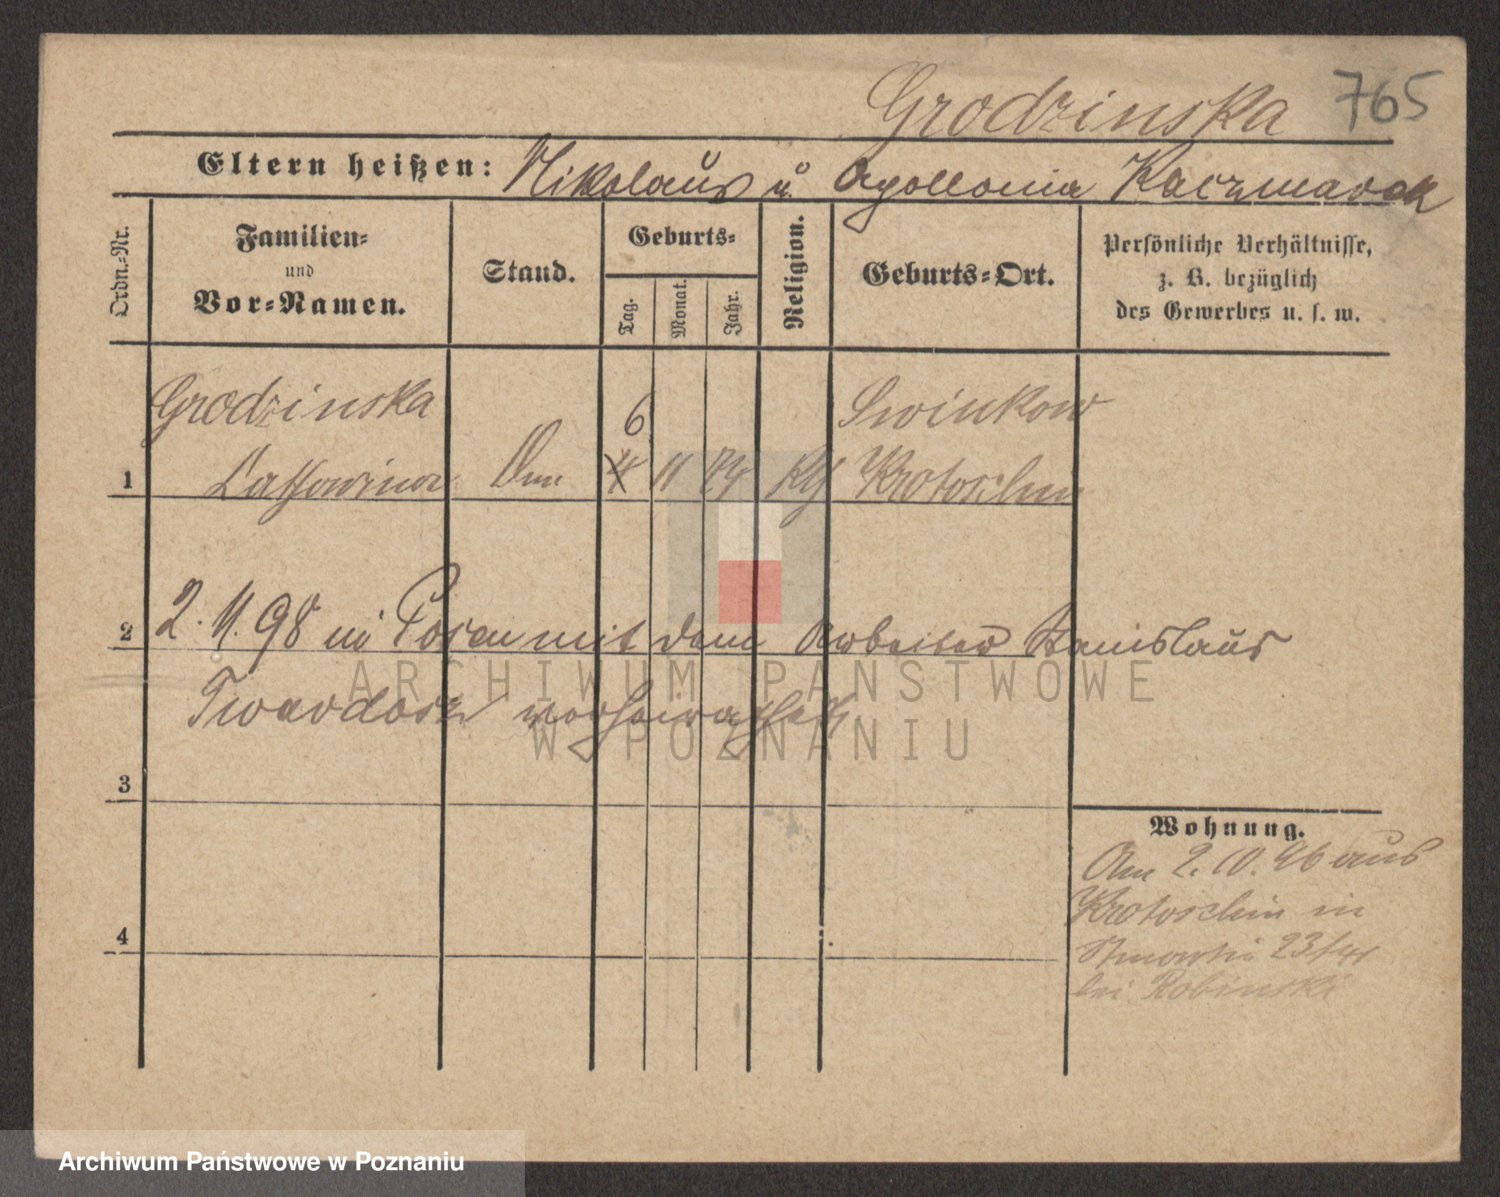 Grodzinska 765
Eltern heißen: Nikolaus u. Apollonia Kaczmarek
Ordn.-Nr.
Familien-
und
Vor-Namen.
Stand.
Geburts-
Tag.
Monat.
Jahr.
Religion.
Geburts-Ort.
Persönliche Verhältnisse,
z. B. bezüglich
des Gewerbes u. s. w.
Grodzinska 6 Swinkow
1 11 74 Kth Krotoschin
2 2. 11. 98 in Posen mit dem Arbeiter Stanislaus
Twardosz verheirathet
3
Wohnung.
Am 2. 10. 96 aus
Krotoschin in
23/
bei Robinski
4
ARCHIWUM PAŃSTWOWE
W POZNANIU
Archiwum Państwowe w Poznaniu